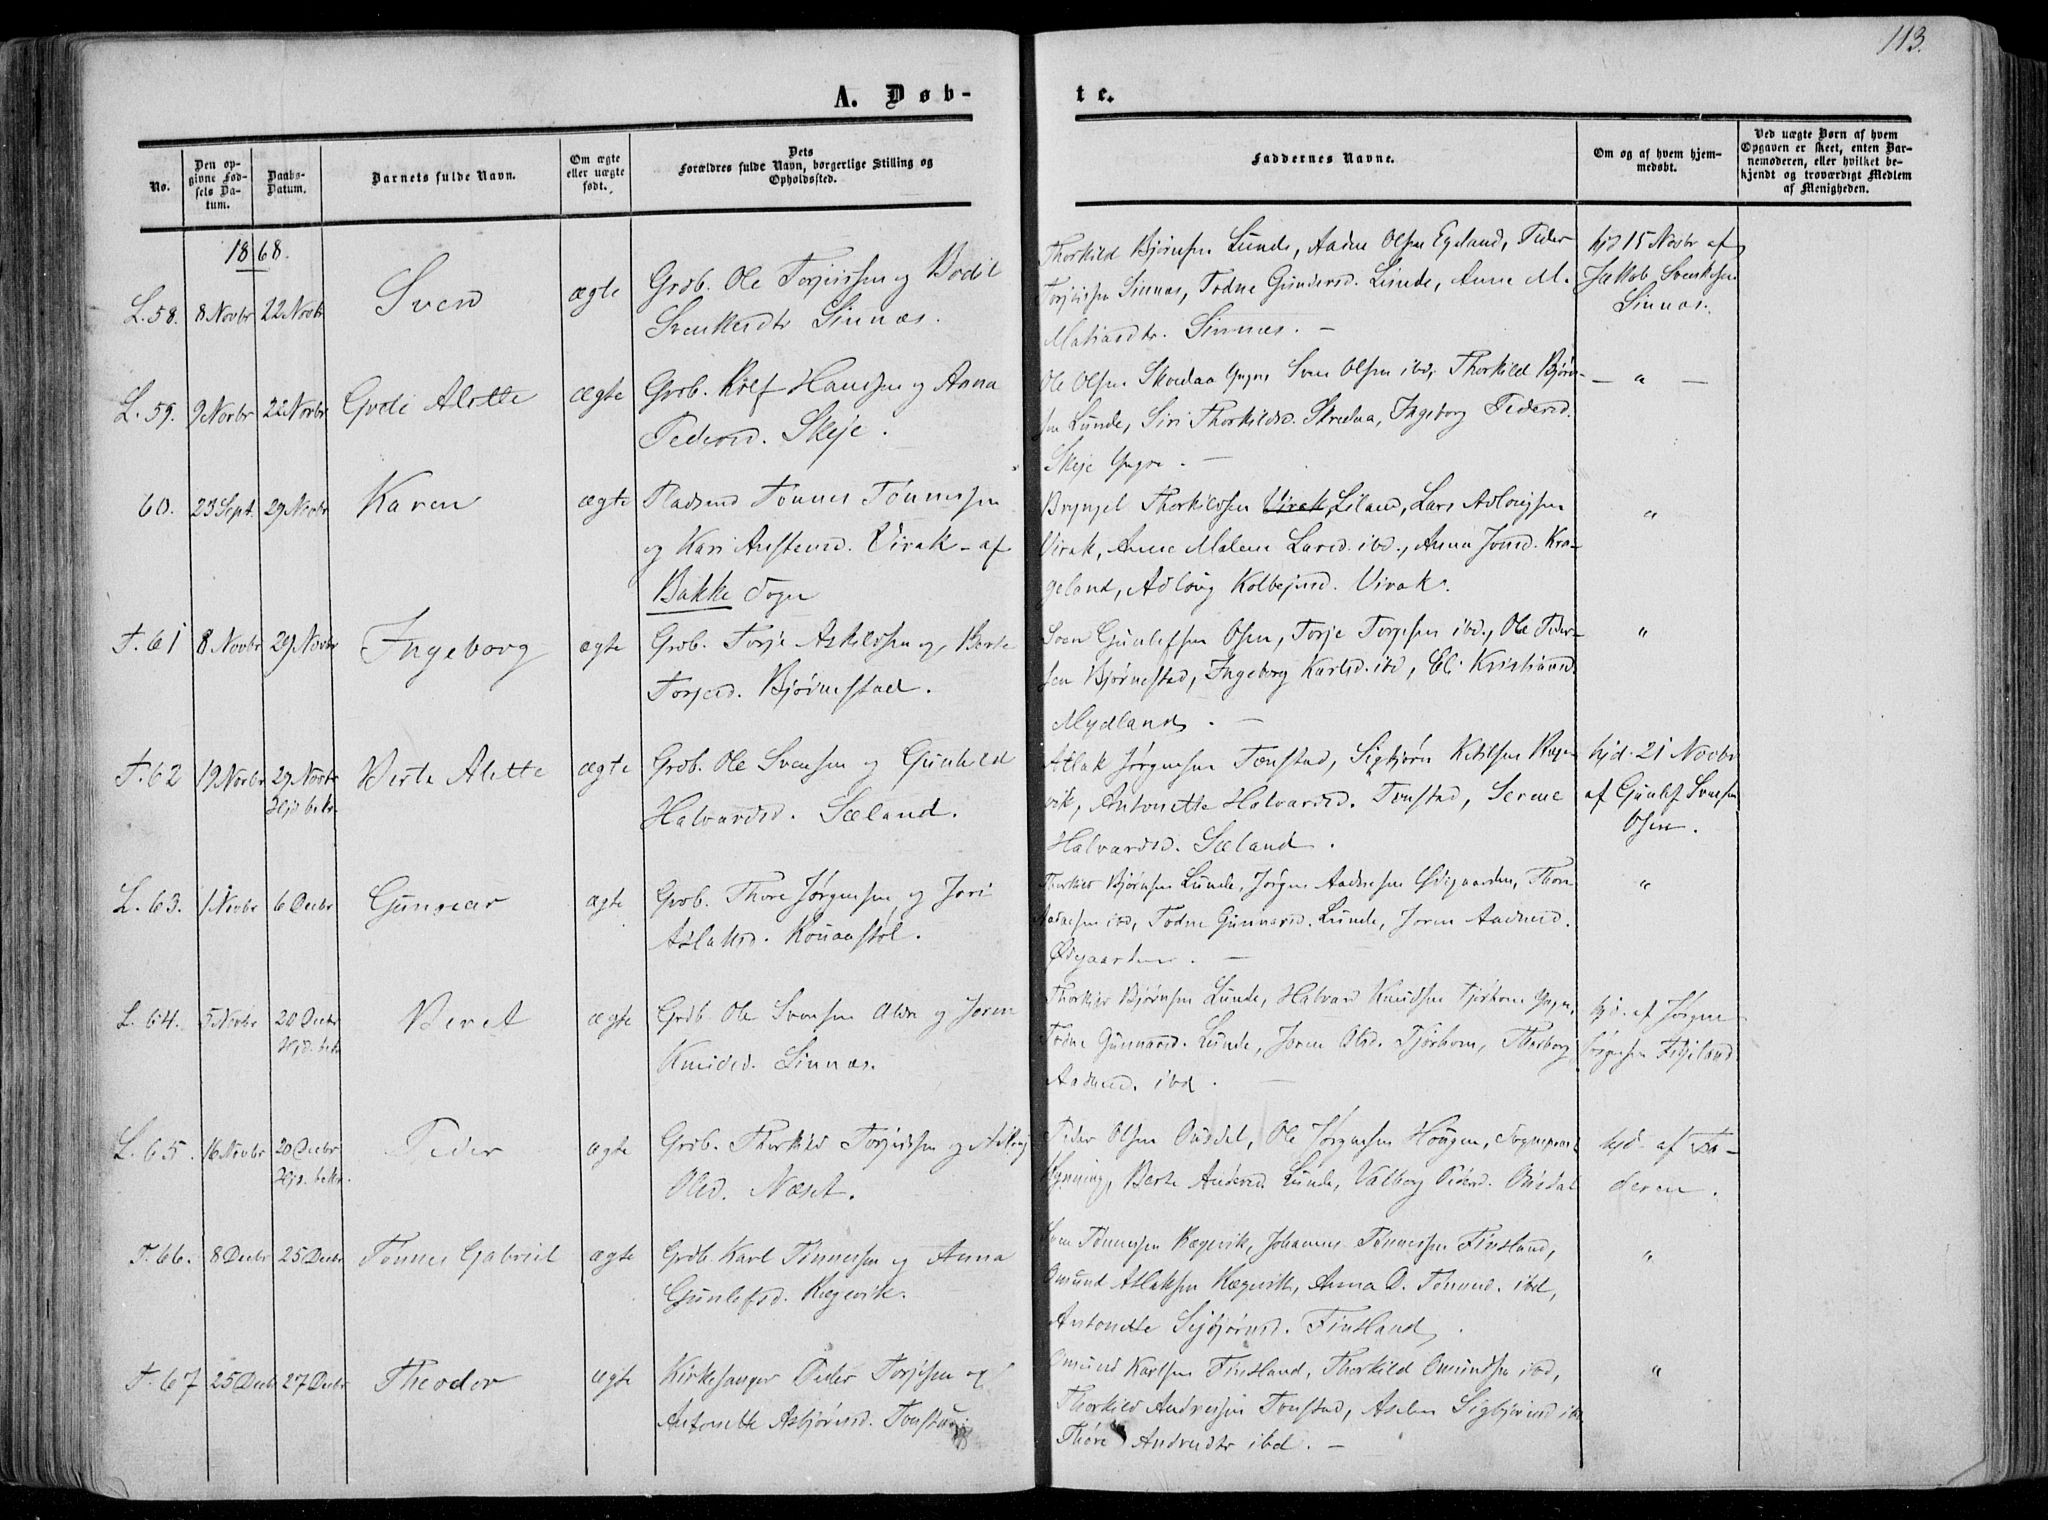 113.
A. Døb-
te.
No.
Den op-
givne Fød-
sels Da-
tum.
Daabs-
Datum.
Barnets fulde Navn.
Om ægte
eller uægte
født.
Dets
Forældres fulde Navn, borgerlige Stilling og
Opholdssted.
Faddernes Navne.
Om og af hvem hjem-
medøbt.
Ved uægte Børn af hvem
Opgaven er skeet, enten Bar-
nemoderen, eller hvilket be-
kjendt og troværdigt Medlem
af Menigheden.
1868.
L. 58. 8 Novbr 22 Novbr
Sven
ægte
Grdb. Ole Torjussen og Bodil
Svenkesdtr Sinnæs.
Thorkild Bjørnsen Lunde, Aadne Olsen Egeland, Peder
Torjussen Sinnæs, Todne Gundersd. Lunde, Anne M.
Mathiasdtr. Sinnæs. —
hjd 15 Novbr af
Jakob Svenkesen
Sinnæs.
L. 59. 9 Novbr 22 Novbr
Alette
ægte
Grdb. Rolf Hansen og Anna
Pedersd. Skeje.
Ole Olsen Skredaa Yngre Sven Olsen ibd, Thorkild Bjørn-
sen Lunde, Siri Thorkildsd. Skredaa, Ingeborg Pedersd.
Skeje Yngre. —
— " —
60. 23 Sept. 29 Novbr
Karen
ægte
Pladsmd Tønnes Tønnessen
og Kari Anstensd. Virak - af
Bakke Sogn
Bryngel Thorkildsen Virak, Liland, Lars Adlougsen
Virak, Anne Malene Larsd. ibd., Anna Jonsd. Kra-
geland, Adloug Kolbejnsd. Virak.
"
T. 61 8 Novbr 29 Novbr
Ingeborg
ægte
Grdb. Torje Askildsen og Berte
Torjesd. Bjørnestad.
Sven Gunlefsen Osen, Torje Torjesen ibd., Ole Peder-
sen Bjørnestad, Ingeborg Karlsd. ibd, Eli Kristiansd.
Mydland. —
"
T. 62 19 Novbr 29 Novbr
Hjd. bekr.
Berte Alette
ægte
Grdb. Ole Svensen og Gunhild
Halvardsd. Sæland.
Aslak Jørgensen Tonstad, Sigbjørn Ketilsen Røge-
vik, Antonette Halvardsd. Tonstad, Serine
Halvardsd. Sæland.
hjd. 21 Novbr
af Gunlef Svensen
Osen.
L. 63. 1 Novbr 6 Decbr
Gunvar
ægte
Grdb. Thore Jørgensen og Jori
Aslaksd. Kouanstøl.
Thorkild Bjørnsen Lunde, Jørgen Aadnesen Ødegaarden, Thore
Aadnesen ibd, Todne Gunnarsd. Lunde, Joren Aadnesd.
Ødegaarden. —
"
L. 64. 5 Novbr 20 Decbr
Hjd. bekr.
Beret
ægte
Grdb. Ole Svensen Ældre og Joren
Knudsd. Sinnæs.
Thorkild Bjørnsen Lunde, Halvard Knudsen Tjørhom Yngre,
Todne Gunnarsd. Lunde, Joren Olsd. Tjørhom, Thorborg
Aadnesd. ibd. —
hjd. af Jørgen
Jørgensen Fidjeland.
L. 65. 16 Novbr 20 Decbr
Hjd. bekr.
Peder
ægte
Grdb. Thorkild Torjussen og Aslaug
Olsd. Næset.
Peder Olsen Ousdal, Ole Jørgensen Hougen, Sognepræst
Hynning, Berte Andersd. Lunde, Valborg Pedersd. Ousdal
hjd. af Fa-
deren.
T. 66. 8 Decbr 25 Decbr
Tønnes Gabriel
ægte
Grdb. Karl Tønnessen og Anna
Gunlefsd. Røgevik.
Sven Tønnessen Røgevik, Johannes Tønnessen Finsland,
Omund Aslaksen Røgevik, Anna O. Tønnesd. ibd,
Antonette Sigbjørnsd. Finsland.
"
T. 67 25 Decbr 27 Decbr
Theodor
ægte
Kirkesanger Peder Torjesen og
Antonette Asbjørnsd. Tonstad.
Omund Karlsen Finsland, Thorkild Omundsen ibd,
Thorkild Andresen Tonstad, Sigbjørnsd ibd
Thore Andersdtr ibd. —
"